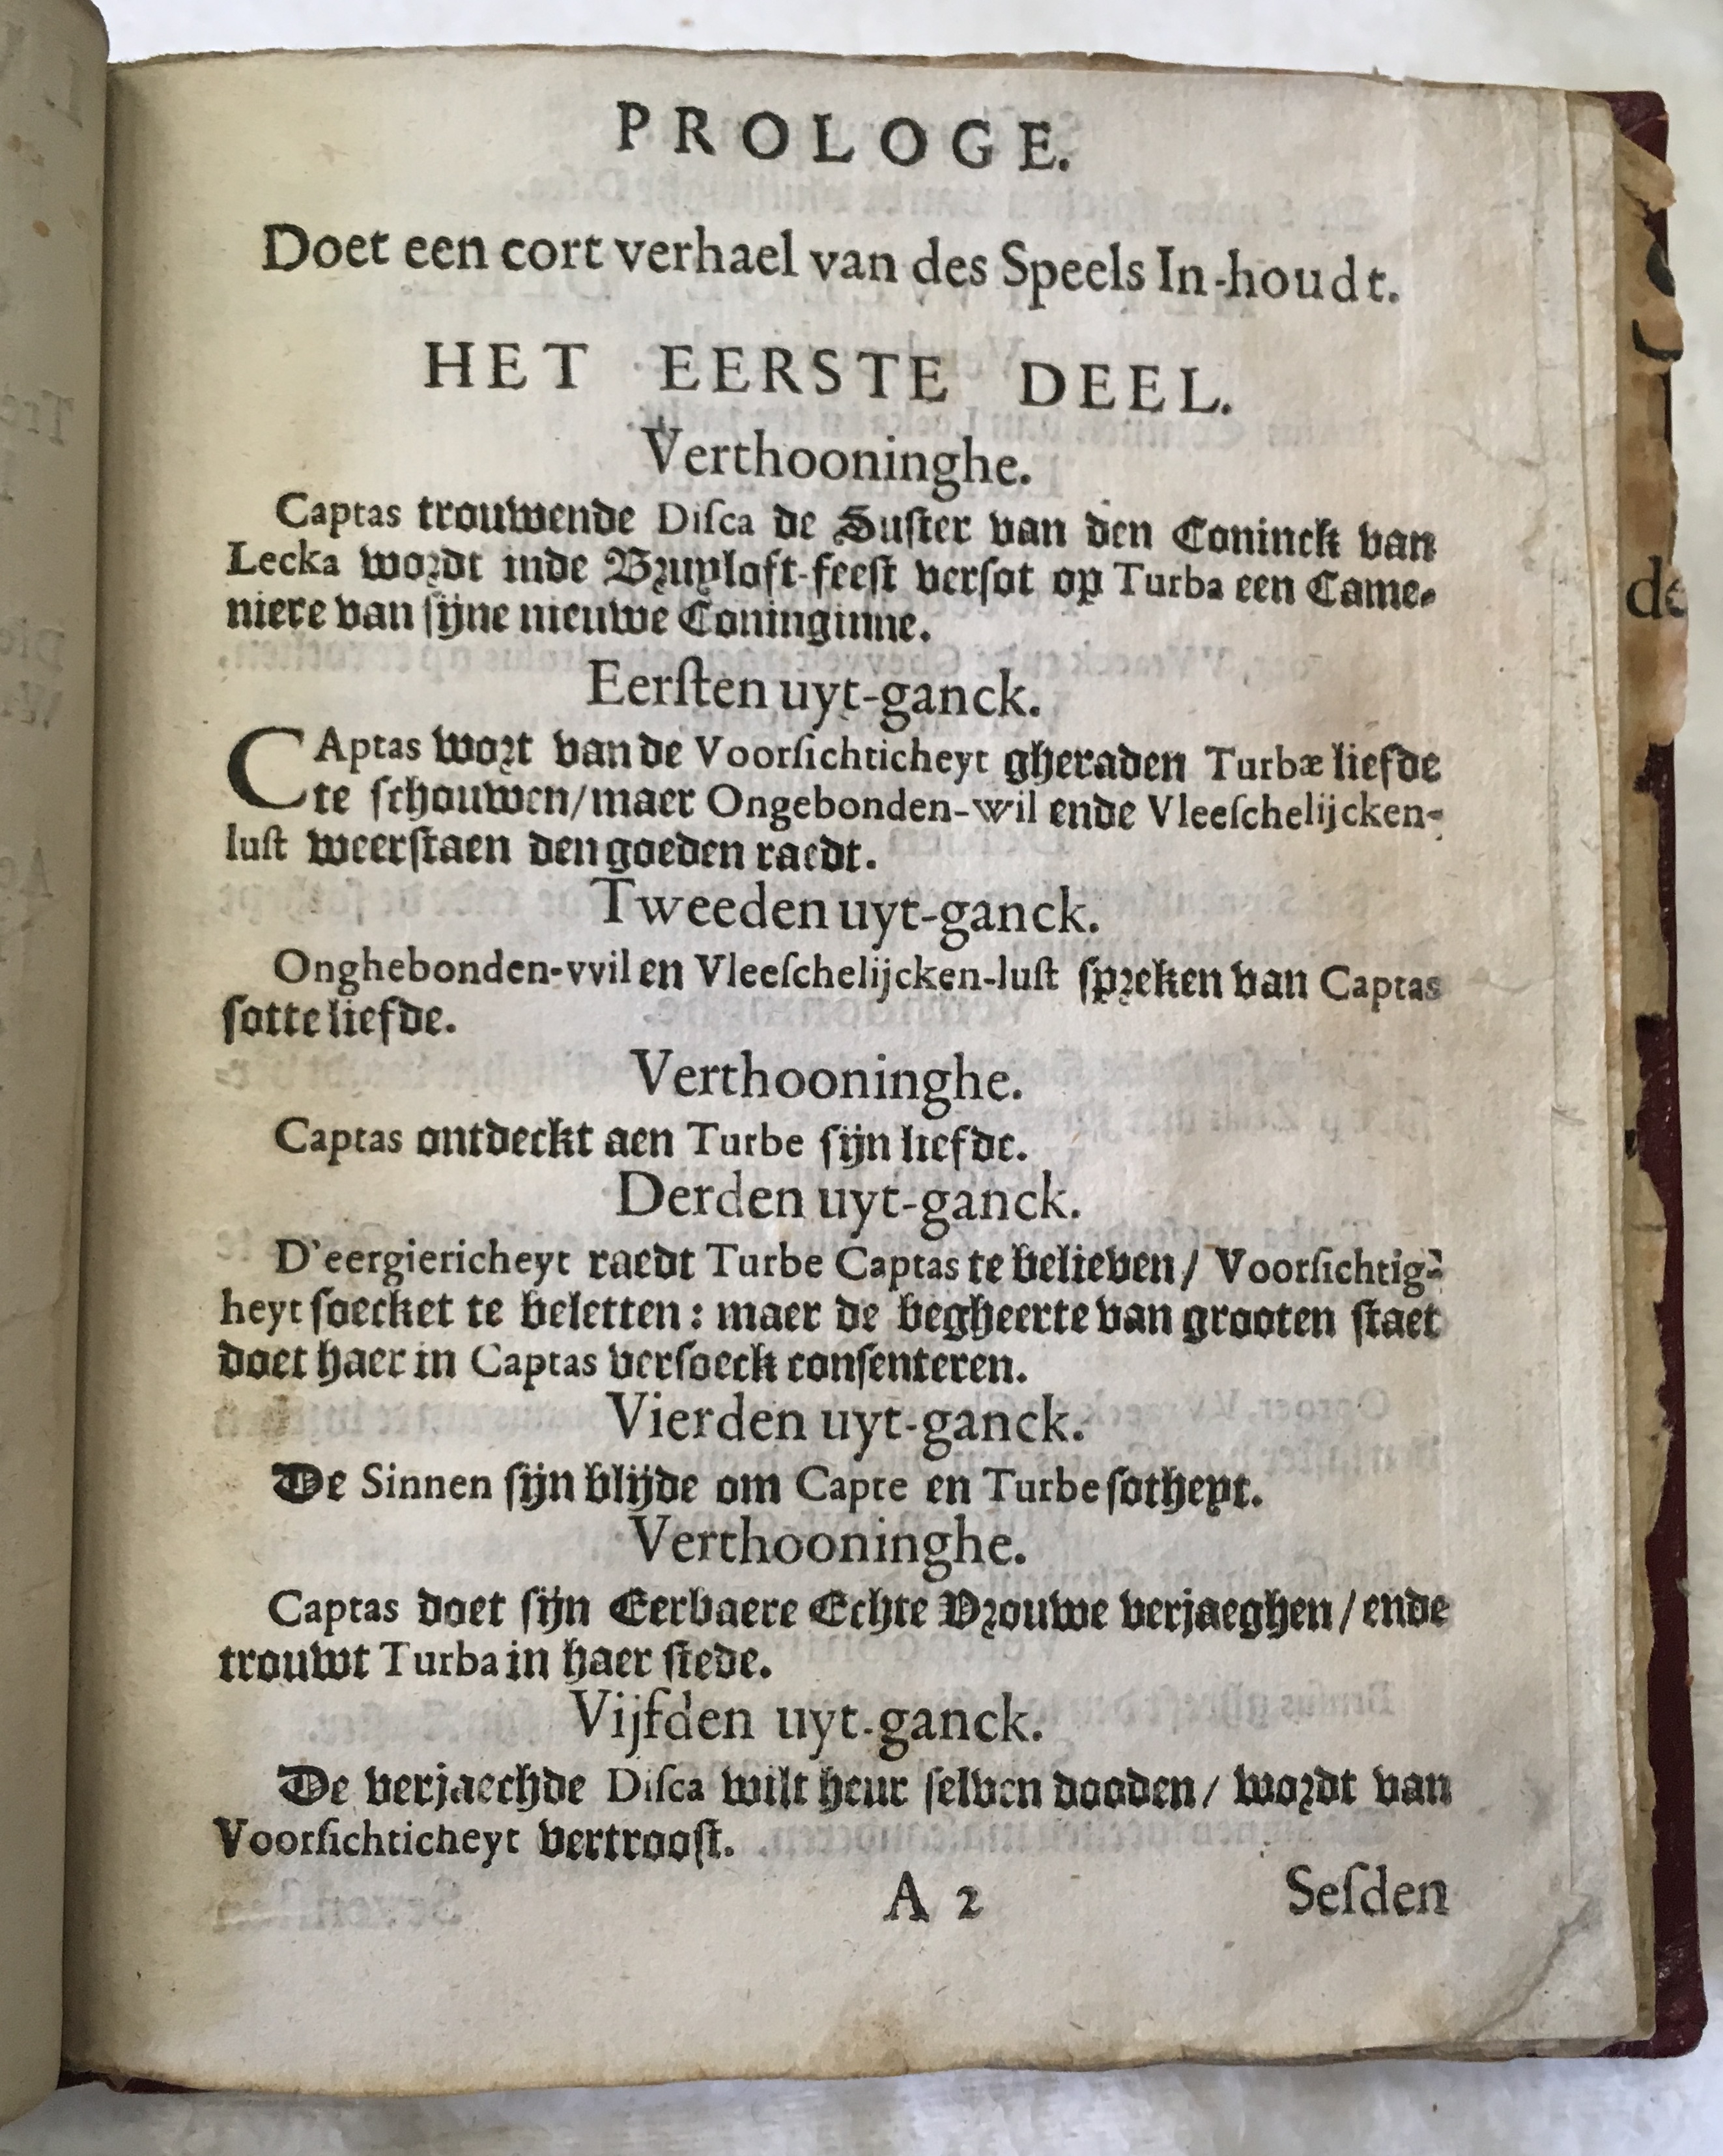 PROLOGE.
Doet een cort verhael van des Speels In-houdt.
HET EERSTE DEEL.
Verthooninghe.
Captas trouwende Diſca de Suſter van den Coninck van
Lecka wordt inde Bruyloft-feeſt verſot op Turba een Came-
niere van ſijne nieuwe Coninginne.
Eerſten uyt-ganck.
CAptas wort van de Voorſichticheyt gheraden Turbæ liefde
te ſchouwen/maer Ongebonden-wil ende Vleeſchelijcken-
luſt weerſtaen den goeden raedt.
Tweeden uyt-ganck.
Onghebonden-vvil en Vleeſchelijcken-luſt ſpreken van Captas
ſotte liefde.
Verthooninghe.
Captas ontdeckt aen Turbe ſijn liefde.
Derden uyt-ganck.
D'eergiericheyt raedt Turbe Captas te believen/ Voorſichtig-
heyt ſoecket te beletten: maer de begheerte van grooten ſtaet
doet haer in Captas verſoeck conſenteren.
Vierden uyt-ganck.
De Sinnen ſijn blijde om Capte en Turbe ſotheyt.
Verthooninghe.
Captas doet ſijn Eerbaere Echte Vrouwe verjaeghen/ende
trouwt Turba in haer ſtede.
Vijfden uyt-ganck.
De verjaechde Diſca wilt heur ſelven dooden/ wordt van
Voorſichticheyt vertrooſt.
A 2 Seſden